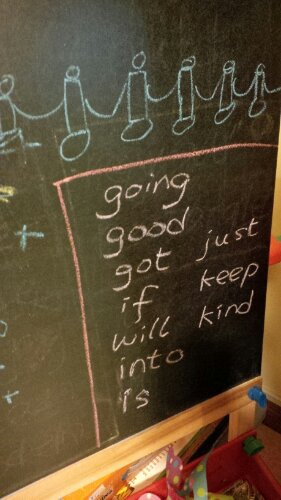 going
good
got just
if keep
will kind
into
is
+